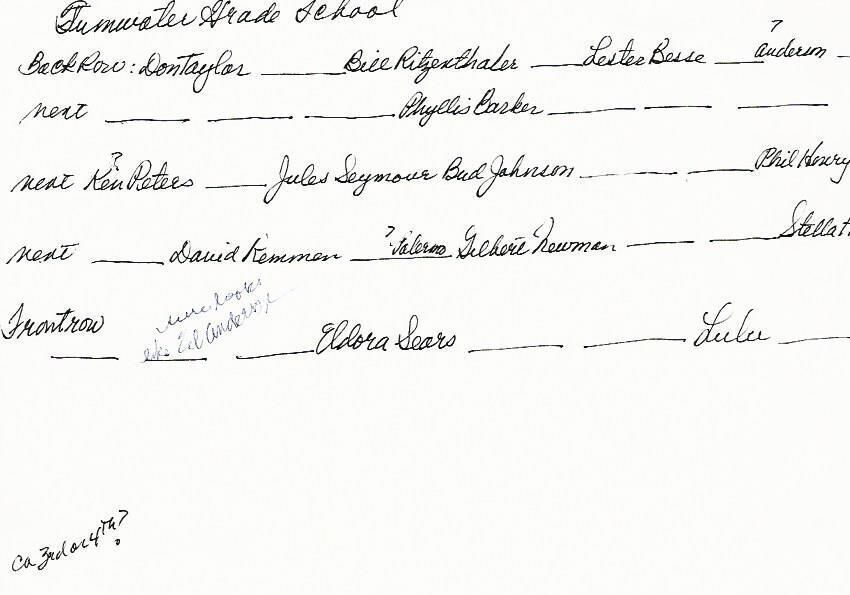 Tumwater Grade School
?
Back Row: Don Taylor ____ Bill Ritzenthaler ____ Lester Besse ____ Anderson
next ____ ____ ____ Phyllis Barker ____ ____ ____
?
next Ken Peters ____ Jules Seymour Bud Johnson ____ ____ Phil Henry
?
next ____ David Kemmen Gilbert Newman ____ ____
sure looks
Front row
like Ed Anderson
____ ____ ____ Eldora Sears ____ ____ Lulu ____
Ca 3rd or 4th?